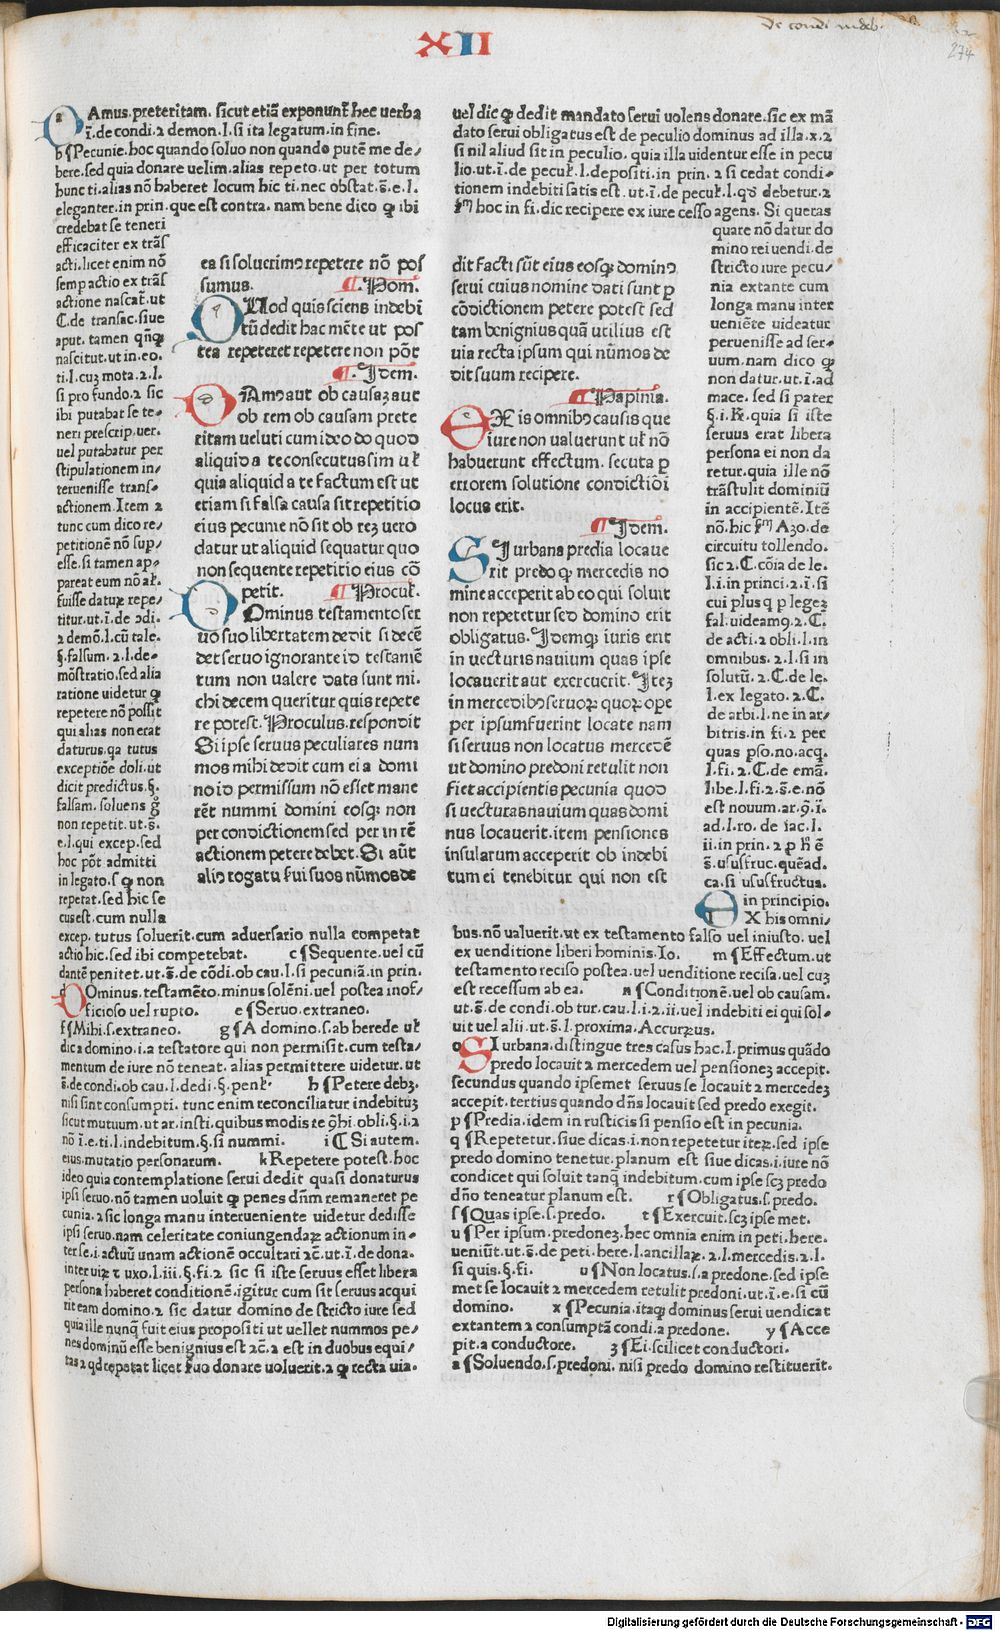 XII
274
Amus.preteritam. sicut etiã exponunt̃ hec uerba
ĩ.de condi.2 demon.l.si ita legatum.in fine.
b ¶Pecunie.hoc quando soluo non quando putẽ me de/
bere.sed quia donare uelim.alias repeto.ut per totum
hunc ti.alias nõ haberet locum hic ti.nec obstat.s̃.e.l.
eleganter.in prin.que est contra.nam bene dico ꝙ ibi
credebat se teneri
efficaciter ex trãs
acti.licet enim nõ
semp actio ex trãs
actione nascat̃.ut
C.de transac.siue
aput.tamen qñꝗ
nascitut.ut in.eo.
ti.l.cuʒ mota.2.l.
si pro fundo.2 sic
ibi putabat se te-
neri prescrip.uer.
uel putabatur per
stipulationem in/
teruenisse trans-
actionem.Item 2
tunc cum dico re/
petitionẽ nõ sup/
esse.si tamen ap/
pareat eum nõ al̃.
fuisse daturꝫ repe/
titur.ut ĩ.de ↄdi.
2 demõ.l.cũ tale.
§.falsum.2.l.de-
mõstratio.sed alia
ratione uidetur ꝙ
repetere nõ possit
qui alias non erat
daturus.qa tutus
exceptiõe doli.ut
dicit predictus.§.
falsam.soluens g̊
non repetit.ut.s̃.
e.l.qui excep.sed
hoc põt admitti
in legato.s ꝙ non
repetat.sed hic se
cus est.cum nulla
excep. tutus soluerit.cum aduersario nulla competat
actio hic.sed ibi competebat. c ¶Sequente.uel cũ
dantẽ penitet.ut.s̃.de cõdi.ob cau.l.si pecuniã.in prin.
d Ominus.testamẽto.minus solẽni.uel postea inof/
ficioso uel rupto. e ¶Seruo.extraneo.
f ¶Mihi.s.extraneo. g ¶A domino.s.ab herede ul̃
dic a domino.i.a testatore qui non permisit.cum testa/
mentum de iure nõ teneat.alias permittere uidetur.ut
s̃.de condi.ob cau.l.dedi.§.penl̃. h ¶Petere debʒ.
nisi sint consumpti. tunc enim reconciliatur indebituʒ
sicut mutuum.ut ar.insti.quibus modis re ꝯhi.obli.§.i.2
nõ ĩ.e.ti.l.indebitum.§.si nummi. i C Si autem.
eius.mutatio personarum. k Repetere potest.hoc
ideo quia contemplatione serui dedit quasi donaturus
ipsi seruo.nõ tamen uoluit ꝙ penes dñm remaneret pe
cunia.2 sic longa manu interueniente uidetur dedisse
ipsi seruo.nam celeritate coniungendaꝝ actionum in-
ter se.i.actuũ unam actionẽ occultari 2c̃.ut ĩ.de dona.
inter uiꝝ ⁊ uxo.l.iii.§.fi.2 sic si iste seruus esset libera
persona haberet conditionẽ.igitur cum sit seruus acqui
rit eam domino.2 sic datur domino de stricto iure sed
quia ille nunꝙ̃ fuit eius propositi ut uellet nummos pe/
nes dominũ esse benignius est 2c̃.2 est in duobus equi/
tas 2 qd repetat licet s̃uo donare uoluerit.2 ꝙ recta uia.
ea si soluerimꝰ repetere nõ pos
sumus. ¶.Pom.
QUod quis sciens indebi
tũ dedit hac mẽte ut pos
tea repeteret repetere non põt
¶.Idem.
DAmꝰ aut ob causaʒ aut
ob rem ob causam prete
ritam veluti cum ideo do quod
aliquid a te consecutus sim ul̃
quia aliquid a te factum est ut
etiam si falsa causa sit repetitio
eius pecunie nõ sit ob reʒ uero
datur ut aliquid sequatur quo
non sequente repetitio eius cõ
petit. ¶Procul̃.
DOminus testamento ser
uo suo libertatem dedit si decẽ
det seruo ignorante id testamẽ
tum non valere data sunt mi.
chi decem queritur quis repete
re potest. Proculus.respondit
Si ipse seruus peculiares num
mos mihi dedit cum ei a domi
no id permissum nõ esset mane
rẽt nummi domini eosꝗ non
per condictionem sed per in rẽ
actionem petere debet. Si aũt
aliꝰ rogatu tui suos nũmos de
uel dic ꝙ dedit mandato serui uolens donare.sic ex mã
dato serui obligatus est de peculio dominus ad illa.x.2
si nil aliud sit in peculio. quia illa uidentur esse in pecu
lio.ut.ĩ.de pecul̃.l.depositi.in prin. 2 si cedat condi-
tionem indebiti satis est.ut.ĩ.de pecul̃.l.qđ debetur.2
hoc in fi.dic recipere ex iure cesso agens. Si queras
quare nõ datur do
mino rei uendi.de
stricto iure pecu/
nia extante cum
longa manu inter
ueniẽte uideatur
peruenisse ad ser-
uum.nam dico ꝙ
non datur.ut.ĩ.ad
mace.sed si pater
§.i.R̃.quia si iste
seruus erat libera
persona ei non da
retur.quia ille nõ
trãstulit dominiũ
in accipientẽ.Itẽ
nõ.hic Azo.de
circuitu tollendo.
sic 2.C.cõia de le.
l.i.in princi.2.ĩ.si
cui plus ꝙ p legeʒ
fal.uideamꝰ.2.C.
de acti.2 obli.l.in
omnibus.2.l.si in
solutũ.2.C.de le.
l.ex legato.2.C.
de arbi.l.ne in ar/
bitris.in fi.2 per
quas pso.no.acq.
l.fi.2.C.de emã.
libe.l.fi.2.s̃.e.nõ
est nouum.ar.ꝯ.ĩ.
ad.l.ro. de iac.l.
ii.in prin.2 p ẽ
s̃.ususfruc.quẽad.
ca.si ususfructus.
in principio.
X his omni/
bus.nõ ualuerit.ut ex testamento falso uel iniusto.uel
ex uenditione liberi hominis.Io. m ¶Effectum.ut
testamento reciso postea.uel uenditione recisa.uel cuʒ
est recessum ab ea. n ¶Conditionẽ.uel ob causam.
ut.s̃.de condi.ob tur.cau.l.i.2.ii.uel indebiti ei qui sol-
uit uel alii.ut.s̃.l.proxima.Accurꝫus.
o SI urbana.distingue tres casus hac.l.primus quãdo
predo locauit 2 mercedem uel pensioneʒ accepit.
secundus quando ipsemet seruus se locauit 2 mercedeʒ
accepit.tertius quando dñs locauit sed predo exegit.
p ¶Predia.idem in rusticis si pensio est in pecunia.
q ¶Repetetur.siue dicas.i.non repetetur iteꝝ.sed ipse
predo domino tenetur.planum est siue dicas.i.iure nõ
condicet qui soluit tanꝗ indebitum.cum ipse scʒ predo
dño teneatur planum est. r ¶Obligatus.s.predo.
s ¶Quas ipse.s.predo. t ¶Exercuit.scʒ ipse met.
u ¶Per ipsum.predoneʒ.hec omnia enim in peti.here.
ueniũt.ut.s̃.de peti.here.l.ancillaꝝ.2.l.mercedis.2.l.
si quis.§.fi. u ¶Non locatus.s.a predone.sed ipse
met se locauit 2 mercedem retulit predoni.ut.ĩ.e.si cũ
domino. x ¶Pecunia.itaꝗ dominus serui uendicat
extantem 2 consumptã condi.a predone. y ¶Acce
pit.a conductore. ʒ ¶Ei.scilicet conductori.
a ¶Soluendo.s.predoni. nisi predo domino restituerit.
dit facti sũt eius eosꝗ dominꝰ
serui cuius nomine dati sunt ꝑ
cõdictionem petere potest sed
tam benignius quã utilius est
via recta ipsum qui nũmos de
dit suum recipere.
¶Papinia.
EX is omnibꝰ causis que
iure non valuerunt ul̃ nõ
habuerunt effectum. secuta ꝑ
errorem solutione condictiõi
locus erit.
¶Idem.
SI urbana predia locaue
rit predo ꝙ mercedis no
mine acceperit ab eo qui soluit
non repetetur sed domino erit
obligatus. Idemꝗ iuris erit
in vecturis navium quas ipse
locaverit aut exercuerit. Iteʒ
in mercedibꝰ seruoꝝ quoꝝ ope
per ipsum fuerint locate nam
si seruus non locatus mercedẽ
ut domino predoni retulit non
fiet accipientis pecunia quod
si vecturas navium quas domi
nus locauerit.item pensiones
insularum acceperit ob indebi
tum ei tenebitur qui non est
Digitalisierung gefördert durch die Deutsche Forschungsgemeinschaft - DFG